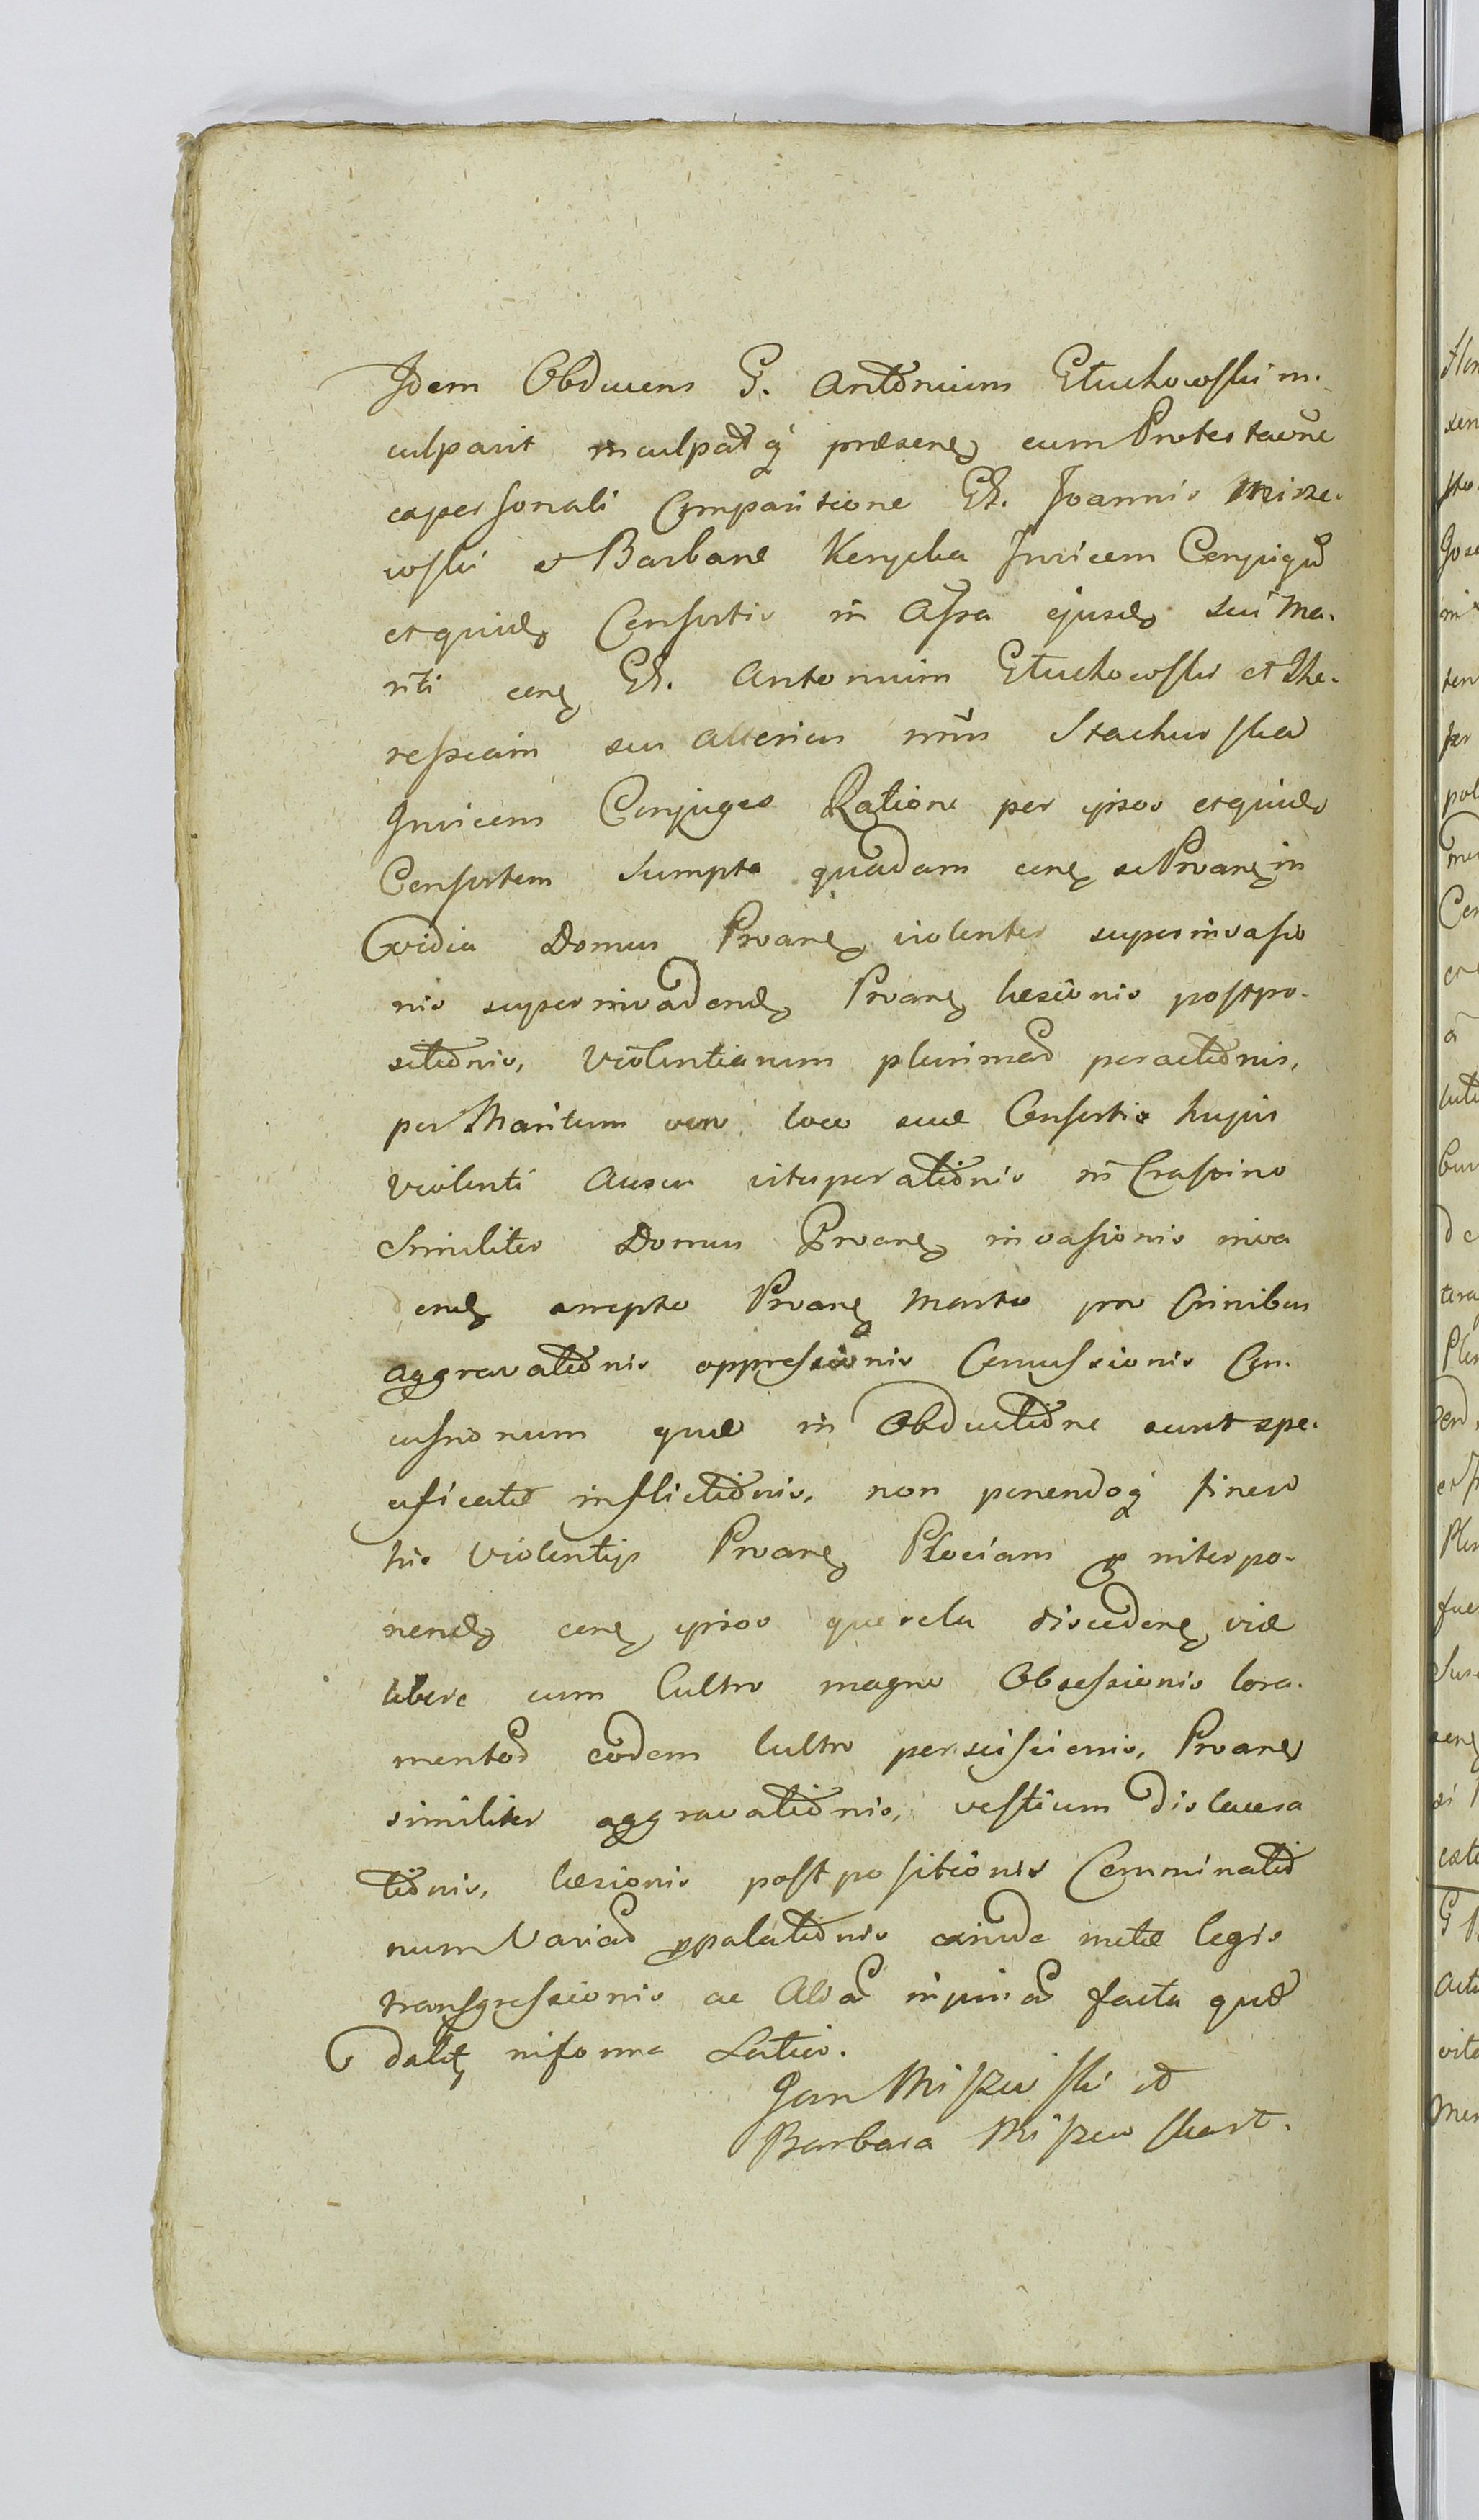 Idem Obducens G. Antonium Głuchowski in-
culpavit inculpatq præsen eum Protestaōne
ex personali Comparitione GG. Joannis Misze-
wski et Barbaræ Kenycka Invicem Conjugū
et quidē Consortis in Assa ejusdē sui Ma-
riti con GG. Antonium Głuchowski et The-
ressiam seu alterius nōis Stachurska
Invicem Conjuges Ratione per ipsos et quidē
Consortem sumpta quadam con se Proan in
Gvidia Domus Proan violenter superinvasio
nis superinvadend Proan læsionis postpo-
sitionis, Violentiarum plurimar peractionis,
per Maritum vero loco suæ Consortis hujus
violenti Ausu vituperationis in Crastino
Similiter Domus Proan invasionis inva
dend arrepto Proan Marito pro Crinibus
aggravationis oppressionis Concussionis Con-
cussionum quæ in Obductione sunt spe-
cificatæ inflictionis, non ponendoq finem
his Violentijs Proan Plociam ꝓ interpo-
nenda con ipsos querela discedend viæ
liberæ cum Cultro magno Obsessionis lora-
mentor eodem Cultro perscissionis, Proan
similiter aggravationis, vestium dislacera
tionis, læsionis postpositionis Comminatio
num Variar ꝓpalationis exinde metæ legis
transgressionis ac Aliar injuriar facta quor
dalit informa Latior.
Jan Miszewski
Barbara Miszewska